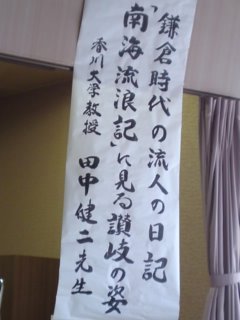 鎌倉時代の流人の日記
「南海流浪記」に見る讃岐の姿
香川大学教授 田中健二先生